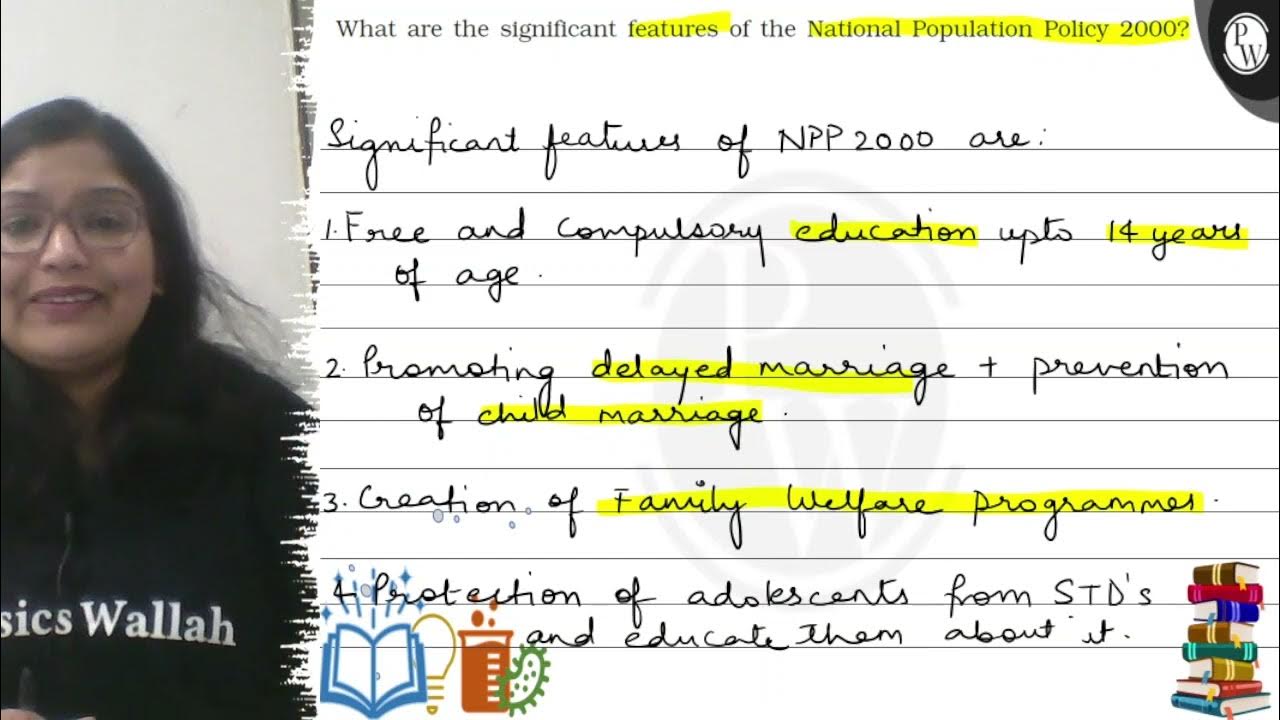 What are the significant features of the National Population Policy 2000?
PW
Significant features of NPP 2000 are:
1. Free and compulsory education upto 14 years
of age.
2. Promoting delayed marriage + prevention
of child marriage.
3. Creation of Family Welfare programmes.
4. Protection of adolescents from STD's
and educate them about it.
sics Wallah